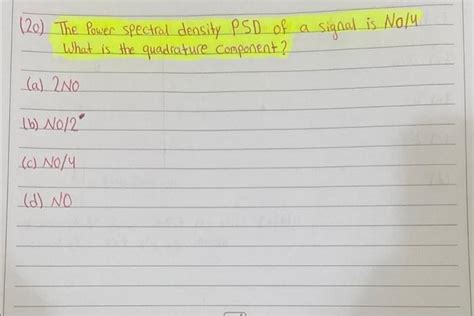 (20) The Power spectral density PSD of a signal is No/4
What is the quadrature component?
(a) 2NO
(b) NO/2
(c) NO/4
(d) NO